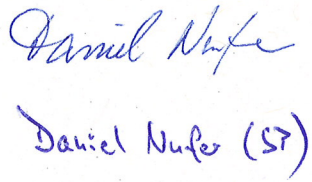 Daniel Nufer
Daniel Nufer (SP)